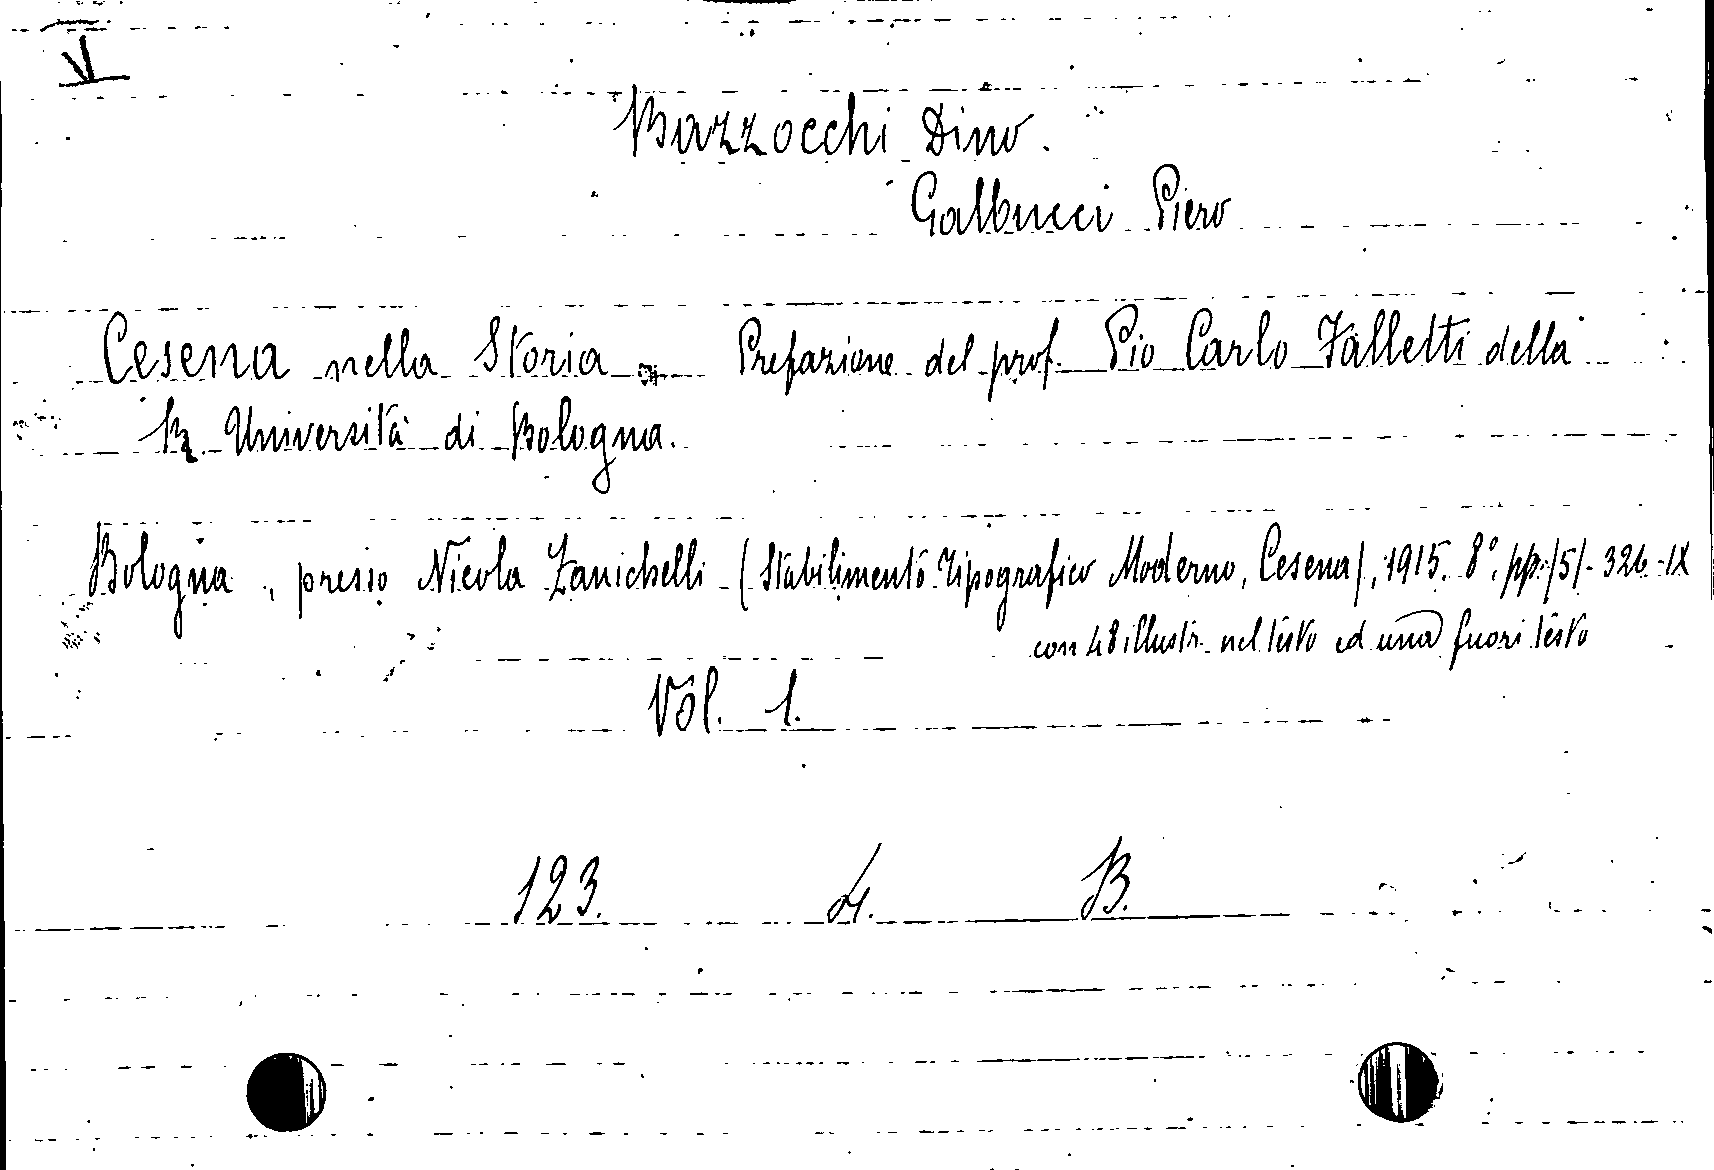 V
Bazzocchi Dino.
Galbucci Piero
Cesena nella Storia Prefazione del prof. Pio Carlo Falletti della
R. Università di Bologna.
Bologna, presso Nicola Zanichelli (Stabilimento Tipografico Moderno, Cesena), 1915. 8°. pp. /5/- 326 -IX
con 48 illustr. nel testo ed una fuori testo
Vol. 1.
123. 4. B.